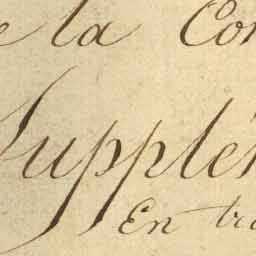 e la Con
Supplém
En tra